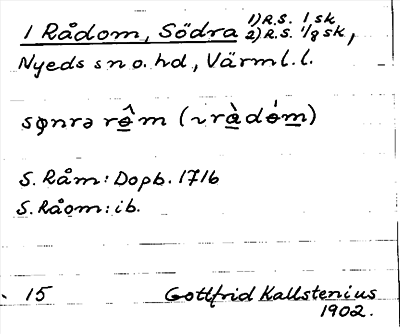 1 Rådom, Södra 1) R.S. 1 sk
2) R.S. 1/8 sk,
Nyeds sn o. hd, Värml. l.
sǫnrə rô̱m (~ rà̱dó̱m)
S. Råm: Dopb. 1716
S. Råom: ib.
15 Gottfrid Kallstenius
1902.